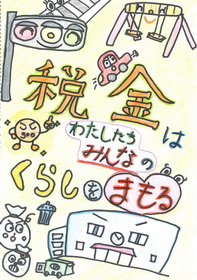 税金は
わたしたち
みんなの
くらしを
まもる